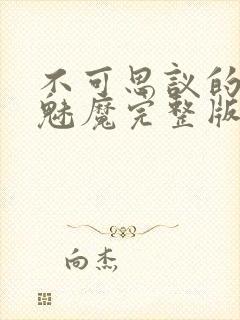 不可思议的
魅魔完整版
向杰